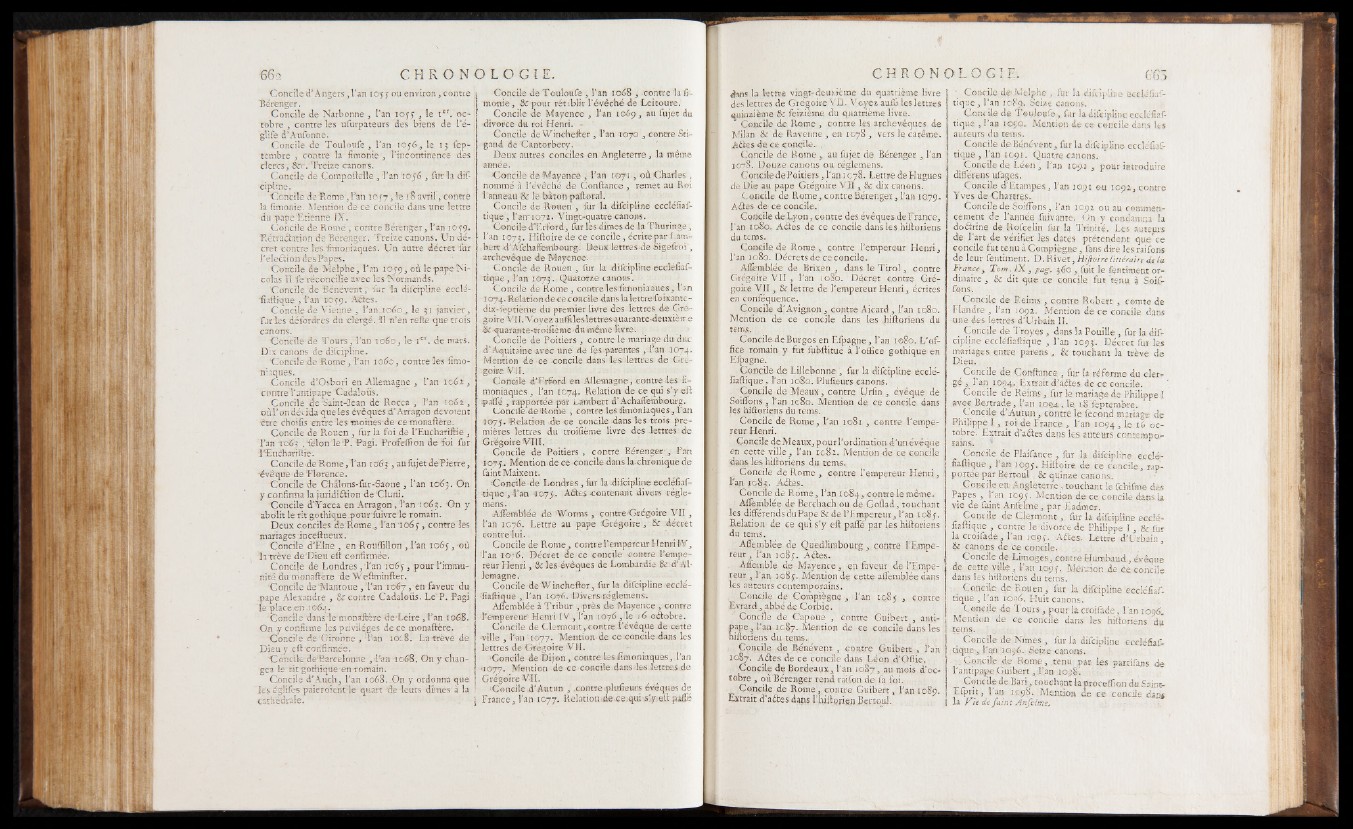 662 CHRONOLOGIE.
Concile d'Angers, l'an 1055 ou environ, contre
Bérenger.
Concile de Narbonne, l'an 1055, le 1er. oc-
tobre, contre les usurpateurs des biens de l'é-
glise d'Ausonne.
Concile de Toulouse, l'an 1056, le 13 sep-
tembre, contre la simonie, l'incontinence des
clercs, &c. Treize canons.
Concile de Compostelle, l'an 1056, sur la dis-
cipline.
Concile de Rome, l'an 1057, le 18 avril, contre
la simonie. Mention de ce concile dans une lettre
du pape Etienne IX.
Concile de Rome, contre Bérenger, l'an 1059.
Rétractation de Bérenger. Treize canons. Un dé-
cret contre les simoniaques. Un autre décret sur
l'election des Papes.
Concile de Melphe, l'an 1059, où le pape Ni-
colas II se réconcilie avec les Normands.
Concile de Bénevent, sur la discipline ecclé-
siastique, l'an 1059. Actes.
Concile de Vienne, l'an 1060, le 31 janvier,
sur les désordres du clergé. Il n'en reste que trois
canons.
Concile de Tours, l'an 1060, le 1er. de mars.
Dix canons de discipline.
Concile de Rome, l'an 1060, contre les simo-
niaques.
Concile d'Osbori en Allemagne, l'an 1062,
contre l'antipape Cadaloüs.
Concile de Saint-Jean de Rocca, l'an 1062,
où l'on décida que les évêques d'Arragon devoient
être choisis entre les moines de ce monastère.
Concile de Rouen, sur la foi de l'Eucharistie,
l'an 1063, selon le P. Pagi. Profession de foi sur
l'Eucharistie.
Concile de Rome, l'an 1063, au sujet de Pierre,
évêque de Florence.
Concile de Châlons-sur-Saone, l'an 1063. On
y confirma la juridiction de Cluni.
Concile d'Yacca en Arragon, l'an 1063. On y
abolit le rit gothique pour suivre le romain.
Deux conciles de Rome, l'an 1065, contre les
mariages incestueux.
Concile d'Elne, en Roussillon, l'an 1065, où
la trève de Dieu est confirmée.
Concile de Londres, l'an 1065, pour l'immu-
nité du monastère de Westminster.
Concile de Mantoue, l'an 1067, en faveur du
pape Alexandre, & contre Cadaloüs. Le P. Pagi
le place en 1064.
Concile dans le monastère de Leire, l'an 1068.
On y confirme les priviléges de ce monastère.
Concile de Gironne, l'an 1068. La trève de
Dieu y est confirmée.
Concile de Barcelonne, l'an 1068. On y chan-
gea le rit gothique en romain.
Concile d'Auch, l'an 1068. On y ordonna que
les églises paieroient le quart de leurs dîmes à la
cathédrale.
Concile de Toulouse, l'an 1068, contre la si-
monie, & pour rétablir l'évêché de Leitoure.
Concile de Mayence, l'an 1069, au sujet du
divorce du roi Henri.
Concile de Winchester, l'an 1070, contre Sti-
gand de Cantorbery.
Deux autres conciles en Angleterre, la même
année.
Concile de Mayence, l'an 1071, où Charles,
nommé à l'évêché de Constance, remet au Roi
l'anneau & le bâton pastoral.
Concile de Rouen, sur la discipline ecclésias-
tique, l'an 1072. Vingt-quatre canons.
Concile d'Erford, sur les dîmes de la Thuringe,
l'an 1073. Histoire de ce concile, écrite par Lam-
bert d'Aschaffembourg. Deux lettres de Sigefroi,
archevêque de Mayence.
Concile de Rouen, sur la discipline ecclésias-
tique, l'an 1074. Quatorze canons.
Concile de Rome, contre les simoniaques, l'an
1074. Relation de ce concile dans la lettre soixante-
dix-septième du premier livre des lettres de Gré-
goire VII. Voyez aussi les lettres quarante-deuxième
& quarante-troisième du même livre.
Concile de Poitiers, contre le mariage du duc
d'Aquitaine avec une de ses parentes, l'an 1074.
Mention de ce concile dans les lettres de Gré-
goire VII.
Concile d'Erford en Allemagne, contre les si-
moniaques, l'an 1074. Relation de ce qui s'y est
passé, rapportée par Lambert d'Achaffembourg.
Concile de Rome, contre les simoniaques, l'an
1075. Relation de ce concile dans les trois pre-
mières lettres du troisième livre des lettres de
Grégoire VIII.
Concile de Poitiers, contre Bérenger, l'an
1075. Mention de ce concile dans la chronique de
saint Maixent.
Concile de Londres, sur la discipline ecclésias-
tique, l'an 1075. Actes contenant divers régle-
mens.
Assemblée de Worms, contre Grégoire VII,
l'an 1076. Lettre au pape Grégoire, & décret
contre lui.
Concile de Rome, contre l'empereur Henri IV,
l'an 1076. Décret de ce concile contre l'empe-
reur Henri, & les évêques de Lombardie & d'Al-
lemagne.
Concile de Winchester, sur la discipline ecclé-
siastique, l'an 1076. Divers réglemens.
Assemblée à Tribur, près de Mayence, contre
l'empereur Henri IV, l'an 1076, le 16 octobre.
Concile de Clermont, contre l'évêque de cette
ville, l'an 1077. Mention de ce concile dans les
lettres de Grégoire VII.
Concile de Dijon, contre les simoniaques, l'an
1077. Mention de ce concile dans les lettres de
Grégoire VII.
Concile d'Autun, contre plusieurs évêques de
France, l'an 1077. Relation de ce qui s'y est passé
CHRONOLOGIE. 663
dans la lettre vingt-deuxième du quatrième livre
des lettres de Grégoire VII. Voyez aussi les lettres
quinzième & seizième du quatrième livre.
Concile de Rome, contre les archevêques de
Milan & de Ravenne, en 1078, vers le carême.
Actes de ce concile.
Concile de Rome, au sujet de Bérenger, l'an
1078. Douze canons ou réglemens.
Concile de Poitiers, l'an 1078. Lettre de Hugues
de Die au pape Grégoire VII, & dix canons.
Concile de Rome, contre Bérenger, l'an 1079.
Actes de ce concile.
Concile de Lyon, contre des évêques de France,
l'an 1080. Actes de ce concile dans les historiens
du tems.
Concile de Rome, contre l'empereur Henri,
l'an 1080. Décrets de ce concile.
Assemblée de Brixen, dans le Tirol, contre
Grégoire VII, l'an 1080. Décret contre Gré-
goire VII, & lettre de l'empereur Henri, écrites
en conséquence.
Concile d'Avignon, contre Aicard, l'an 1080.
Mention de ce concile dans les historiens du
tems.
Concile de Burgos en Espagne, l'an 1080. L'of-
fice romain y fut substitué à l'office gothique en
Espagne.
Concile de Lillebonne, sur la discipline ecclé-
siastique, l'an 1080. Plusieurs canons.
Concile de Meaux, contre Ursin, évêque de
Soissons, l'an 1080. Mention de ce concile dans
les historiens du tems.
Concile de Rome, l'an 1081, contre l'empe-
reur Henri.
Concile de Meaux, pour l'ordination d'un évêque
en cette ville, l'an 1082. Mention de ce concile
dans les historiens du tems.
Concile de Rome, contre l'empereur Henri,
l'an 1083. Actes.
Concile de Rome, l'an 1084, contre le même.
Assemblée de Berchach ou de Gostad, touchant
les différends du Pape & de l'Empereur, l'an 1085.
Relation de ce qui s'y est passé par les historiens
du tems.
Assemblée de Quedlimbourg, contre l'Empe-
reur, l'an 1085. Actes.
Assemblée de Mayence, en faveur de l'Empe-
reur, l'an 1085. Mention de cette assemblée dans
les auteurs contemporains.
Concile de Compiégne, l'an 1085, contre
Evrard, abbé de Corbie.
Concile de Capoue, contre Guibert, anti-
pape, l'an 1087. Mention de ce concile dans les
historiens du tems.
Concile de Bénévent, contre Guibert, l'an
1087. Actes de ce concile dans Léon d'Ostie.
Concile de Bordeaux, l'an 1087, au mois d'oc-
tobre, où Bérenger rend raison de sa foi.
Concile de Rome, contre Guibert, l'an 1089.
Extrait d'actes dans l'historien Bertoul.
Concile de Melphe, sur la discipline ecclésias-
tique, l'an 1089. Seize canons.
Concile de Toulouse, sur la discipline ecclésias-
tique, l'an 1090. Mention de ce concile dans les
auteurs du tems.
Concile de Bénévent, sur la discipline ecclésias-
tique, l'an 1091. Quatre canons.
Concile de Léon, l'an 1091, pour introduire
différens usages.
Concile d'Etampes, l'an 1091 ou 1092, contre
Yves de Chartres.
Concile de Soissons, l'an 1092 ou au commen-
cement de l'année suivante. On y condamna la
doctrine de Roscelin sur la Trinité. Les auteurs
de l'art de vérifier les dates prétendent que ce
concile fut tenu à Compiègne, sans dire les raisons
de leur sentiment. D. Rivet, Histoire littéraire de la
France, Tom. IX, pag. 360, suit le sentiment or-
dinaire, & dit que ce concile fut tenu à Sois-
sons.
Concile de Reims, contre Robert, comte de
Flandre, l'an 1092. Mention de ce concile dans
une des lettres d'Urbain II.
Concile de Troyes, dans la Pouille, sur la dis-
cipline ecclésiastique, l'an 1093. Décret sur les
mariages entre parens, & touchant la trève de
Dieu.
Concile de Constance, sur la réforme du cler-
gé, l'an 1094. Extrait d'actes de ce concile.
Concile de Reims, sur le mariage de Philippe I
avec Bertrade, l'an 1094, le 18 septembre.
Concile d'Autun, contre le second mariage de
Philippe I, roi de France, l'an 1094, le 16 oc-
tobre. Extrait d'actes dans les auteurs contempo-
rains.
Concile de Plaisance, sur la discipline ecclé-
siastique, l'an 1095. Histoire de ce concile, rap-
portée par Bertoul, & quinze canons.
Concile en Angleterre, touchant le schisme des
Papes, l'an 1095. Mention de ce concile dans la
vie de saint Anselme, par Eadmer.
Concile de Clermont, sur la discipline ecclé-
siastique, contre le divorce de Philippe I, & sur
la croisade, l'an 1095. Actes. Lettre d'Urbain,
& canons de ce concile.
Concile de Limoges, contre Humbaud, évêque
de cette ville, l'an 1095. Mention de ce concile
dans les historiens du tems.
Concile de Rouen, sur la discipline ecclésias-
tique, l'an 1096. Huit canons.
Concile de Tours, pour la croisade, l'an 1096.
Mention de ce concile dans les historiens du
tems.
Concile de Nimes, sur la discipline ecclésias-
tique, l'an 1096. Seize canons.
Concile de Rome, tenu par les partisans de
l'antipape Guibert, l'an 1098.
Concile de Bari, touchant la procession du Saint-
Esprit, l'an 1098. Mention de ce concile dans
la Vie de saint Anselme.